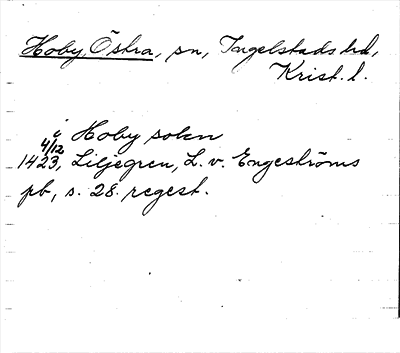 Hoby, Östra, sn, Ingelstads hd,
Krist. l.
i Hoby sokn
4/12
1423, Liljegren, L. v. Engeströms
pb, s. 28. regest.